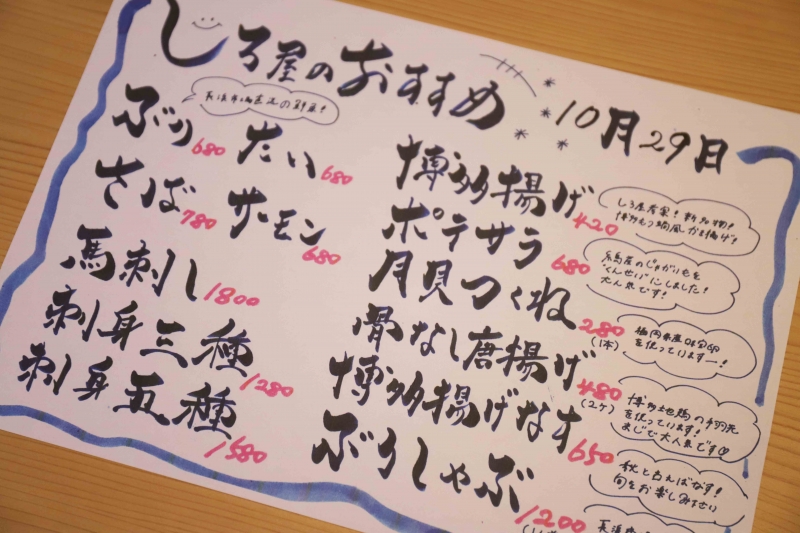 しろ屋のおすすめ 10月29日
長浜市場直送の鮮魚!
ぶり 680
たい 680
さば 780
サーモン 680
馬刺し 1800
刺身三種 1280
刺身五種 1580
博多揚げ 420
しろ屋考案!新名物!
博多もつ鍋風かま揚げ!
ポテサラ 680
糸島産のじゃがいもを
"くんせい"にしました!
大人気です!
月見つくね 280
(1本)
福岡県産の卵
を使っています—!
骨なし唐揚げ 480
(2ケ)
博多地鶏の手羽先
を使っています!
まじで大人気です♡
博多揚げなす 650
秋と言えばなす!
旬をお楽しみ下さい
ぶりしゃぶ 1200
長浜